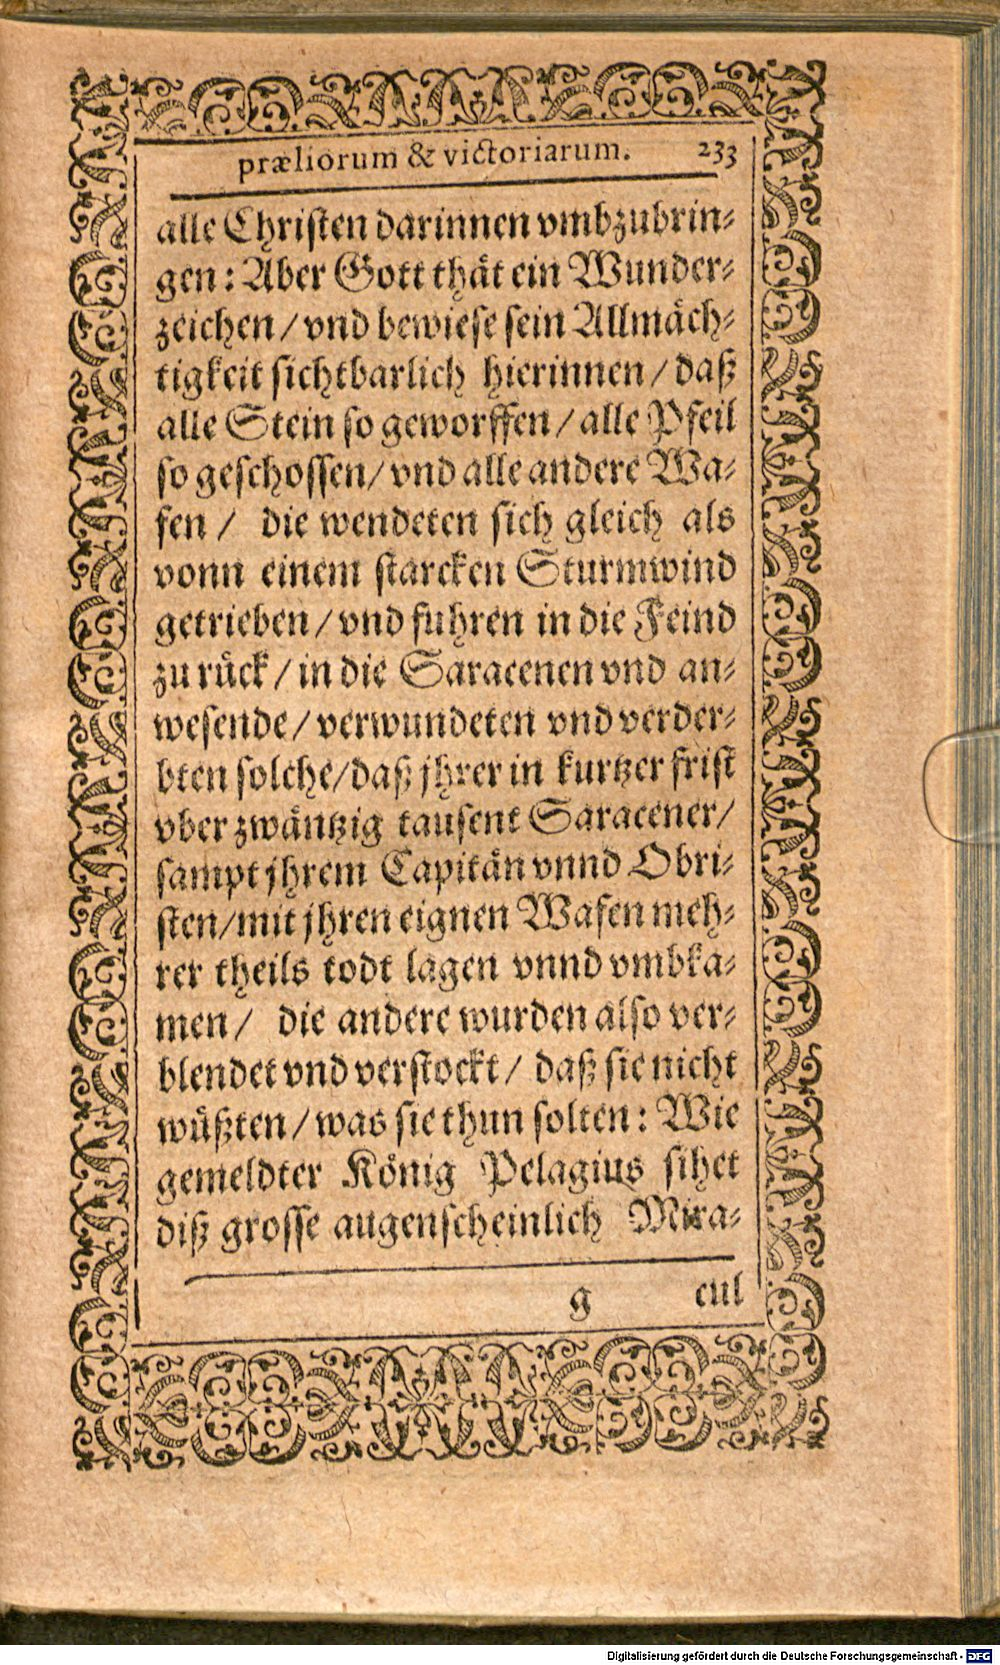 præliorum & victoriarum. 233
alle Christen darinnen vmbzubrin⸗
gen: Aber Gott thät ein Wunder⸗
zeichen / vnd bewiese sein Allmäch⸗
tigkeit sichtbarlich hierinnen / daß
alle Stein so geworffen / alle Pfeil
so geschossen / vnd alle andere Wa⸗
fen / die wendeten sich gleich als
vonn einem starcken Sturmwind
getrieben / vnd fuhren in die Feind
zu rück / in die Saracenen vnd an⸗
wesende / verwundeten vnd verder⸗
bten solche / daß jhrer in kurtzer frist
vber zwäntzig tausent Saracener /
sampt jhrem Capitän vnnd Obri⸗
sten / mit jhren eignen Wafen meh⸗
rer theils todt lagen vnnd vmbka⸗
men / die andere wurden also ver⸗
blendet vnd verstockt / daß sie nicht
wüßten / was sie thun solten: Wie
gemeldter König Pelagius sihet
diß grosse augenscheinlich Mira⸗
g cul
Digitalisierung gefördert durch die Deutsche Forschungsgemeinschaft - DFG